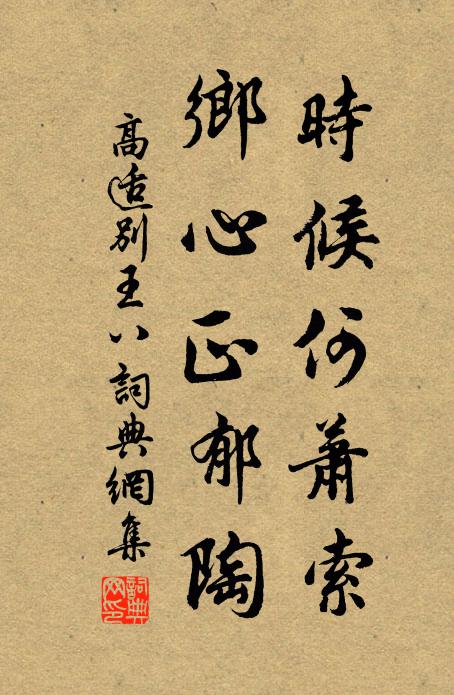 時候何蕭索
鄉心正郁陶
高适別王八詞典網集
詞典網印